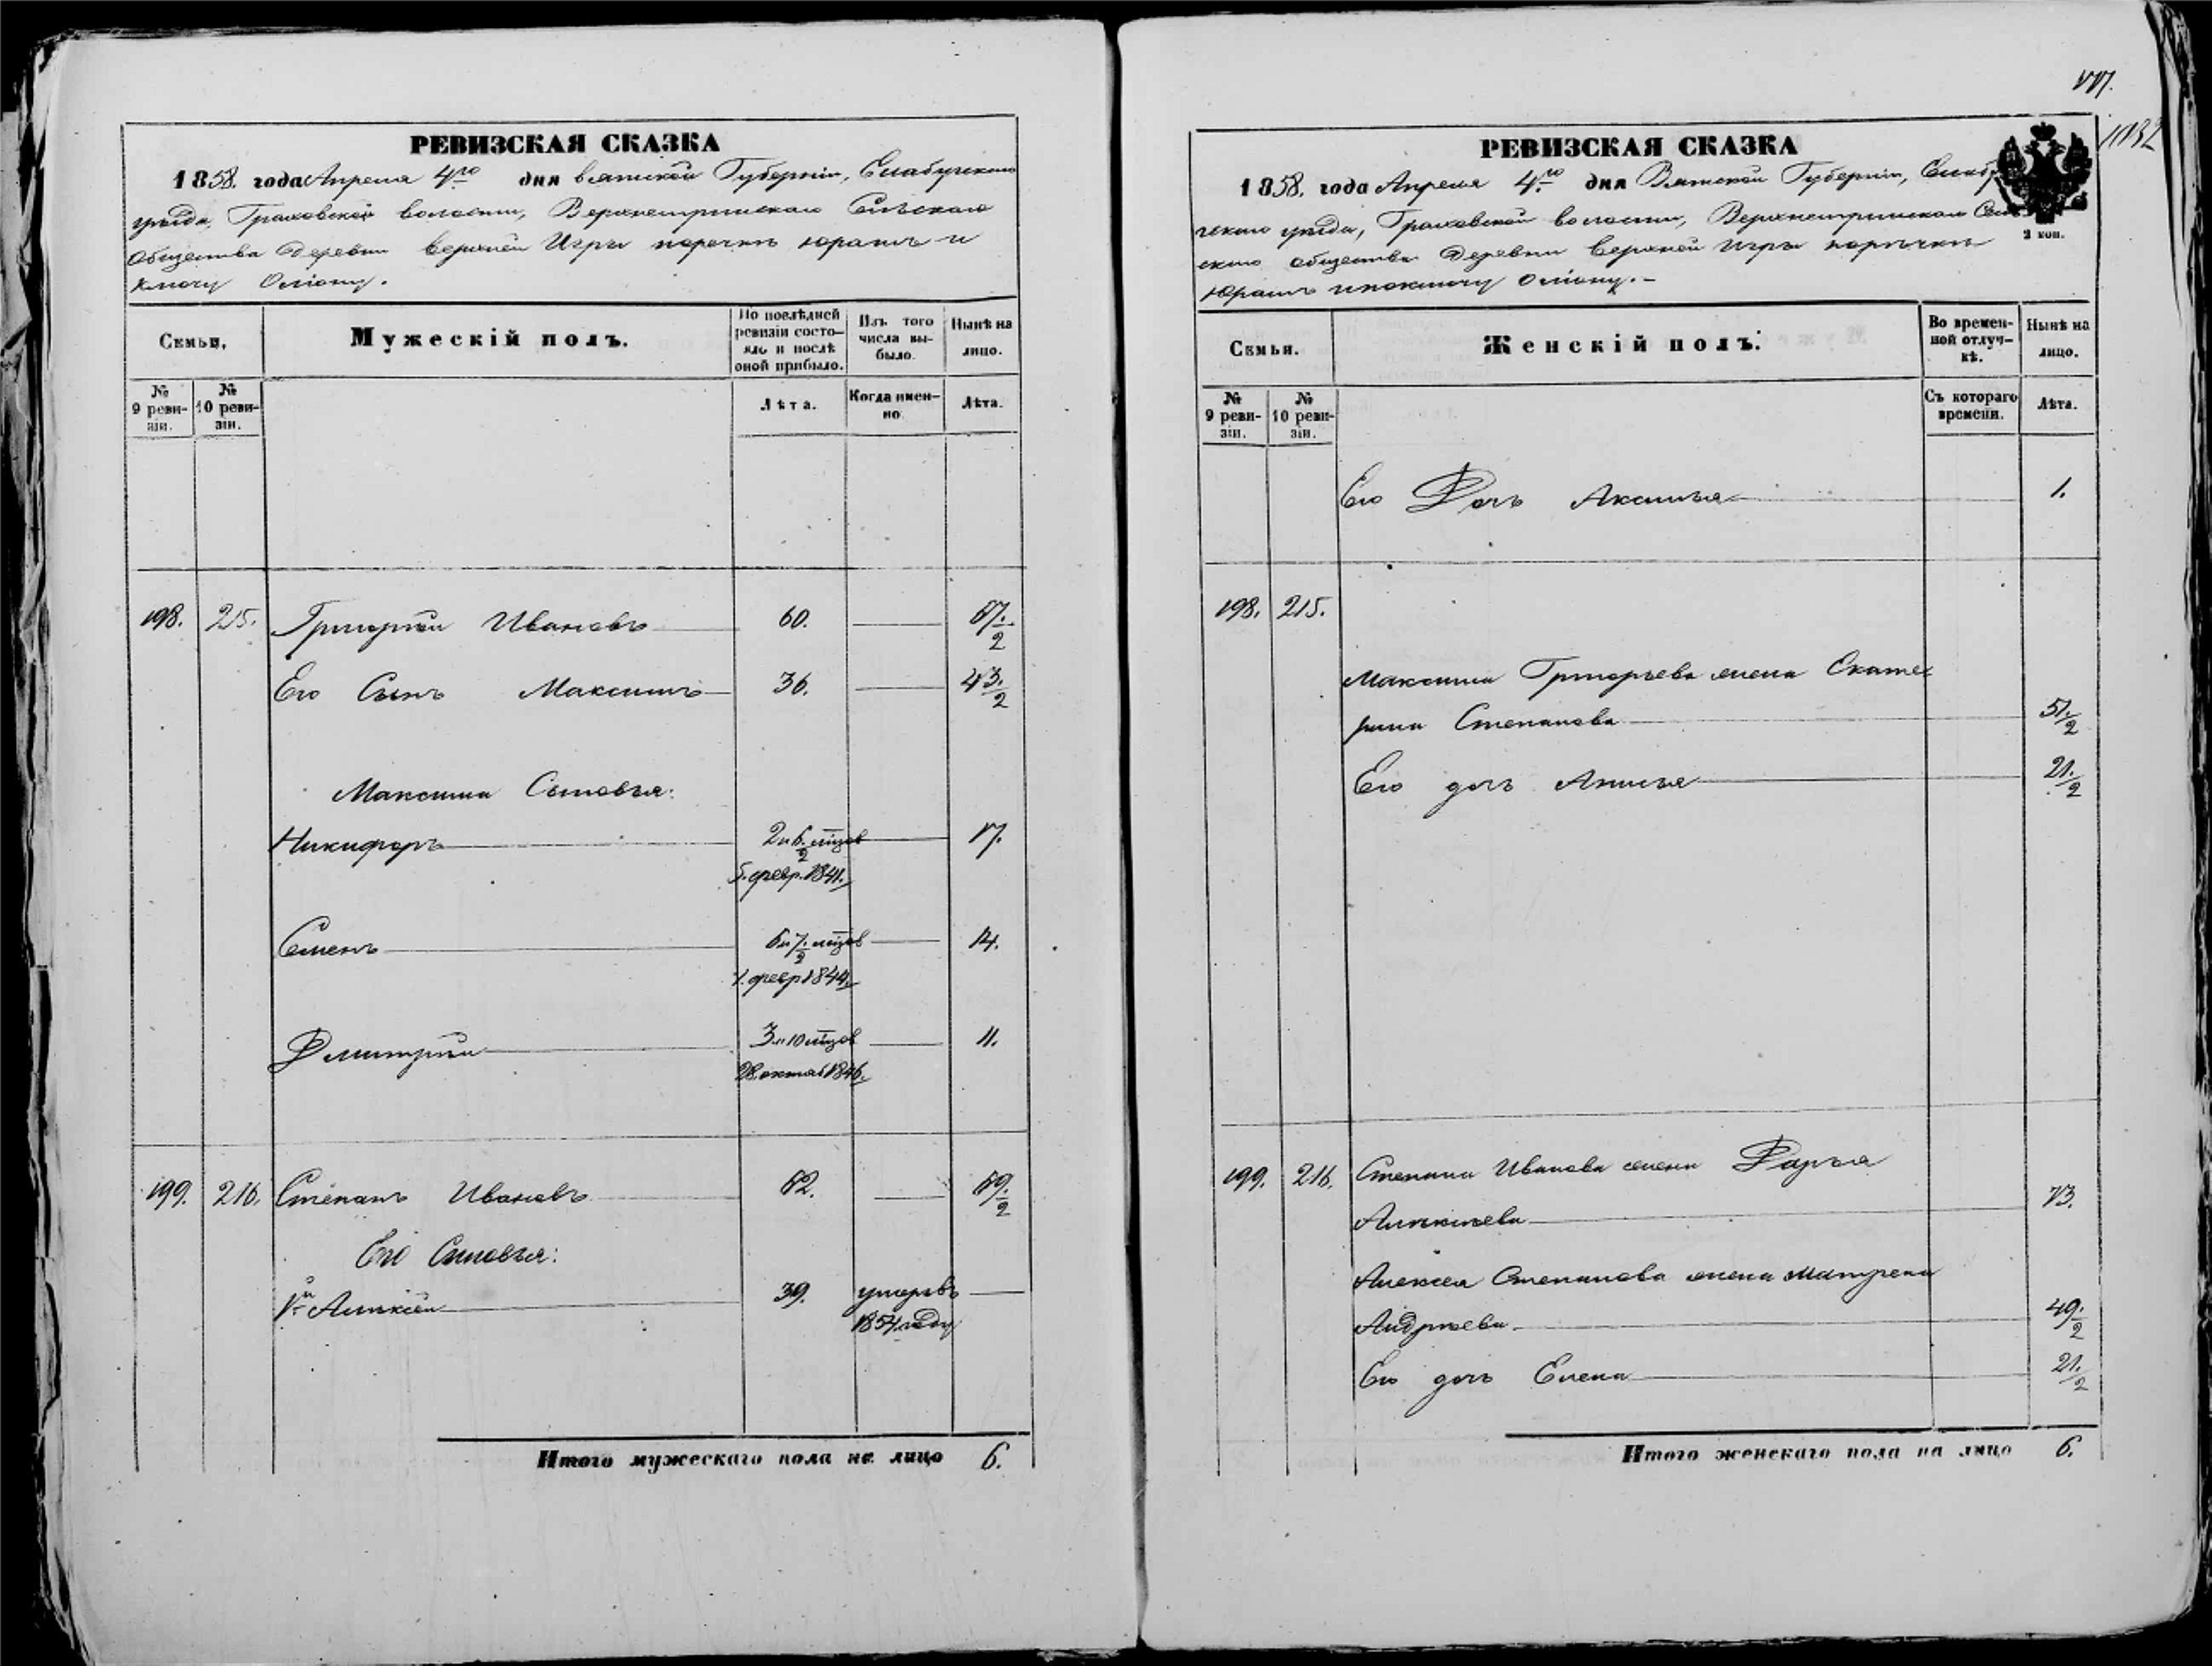 РЕВИЗСКАЯ СКАЗКА
1858. года Апреля 4го дня Вятской Губернии, Елабужскаго
уѣзда, Граховской волости, Верхнеигринскаго Сельскаго
Общества деревни Верхней Игры поречкѣ Юрашъ и
ключу
Семьи,
Мужескій полъ.
По послѣдней
ревизіи состо-
яло и послѣ
оной прибыло.
Изъ того
числа вы-
было.
Нынѣ на
лицо.
№
9 реви-
зіи.
№
10 реви-
зіи.
Лѣта.
Когда имен-
но.
Лѣта.
198. 215. Григорій Ивановъ 60. 67.½
Его Сынъ Максимъ 36. 43.½
Максима Сыновья:
Никифоръ 17.
5. февр. 1841.
Семенъ 14.
1. февр 1844.
Дмитрій 11.
28 октяб 1846.
199. 216. Степанъ Ивановъ 62. 69.½
Его Сыновья:
1й Алѣксѣй 39. умеръ въ
1854 году
Итого мужескаго пола на лицо 6.
1032
РЕВИЗСКАЯ СКАЗКА
1858. года Апреля 4го дня Вятской Губернии,
уѣзда, Граховской волости, Верхнеигринскаго
скаго общества деревни Верхней Игры поръчкѣ
Юрашъ и поключу
2 коп.
Семьи.
Женскій полъ.
Во времен-
ной отлуч-
кѣ.
Нынѣ на
лицо.
№
9 реви-
зіи.
№
10 реви-
зіи.
Съ котораго
времени.
Лѣта.
Его Дочь Аксинья 1.
198. 215.
Максима Григорьева жена Екате-
рина Степанова 51.½
Его дочь Анисья 21.½
199. 216. Степана Иванова жена Дарья
Алѣксѣева 73.
Алексея Степанова жена Матрена
Андрѣева 49.½
Его дочь Елена 21.½
Итого женскаго пола на лицо 6.